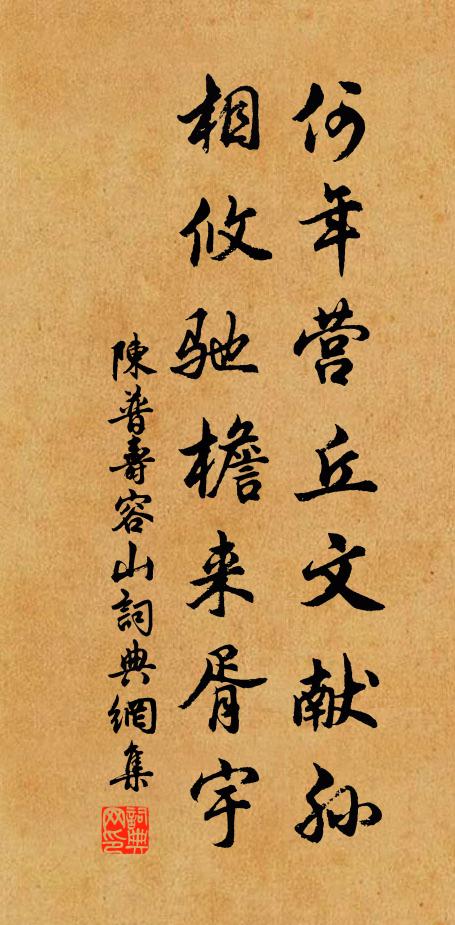 何年营丘文献孙
相攸驰檐来胥宇
陳普壽容山詞典網集
詞典网印